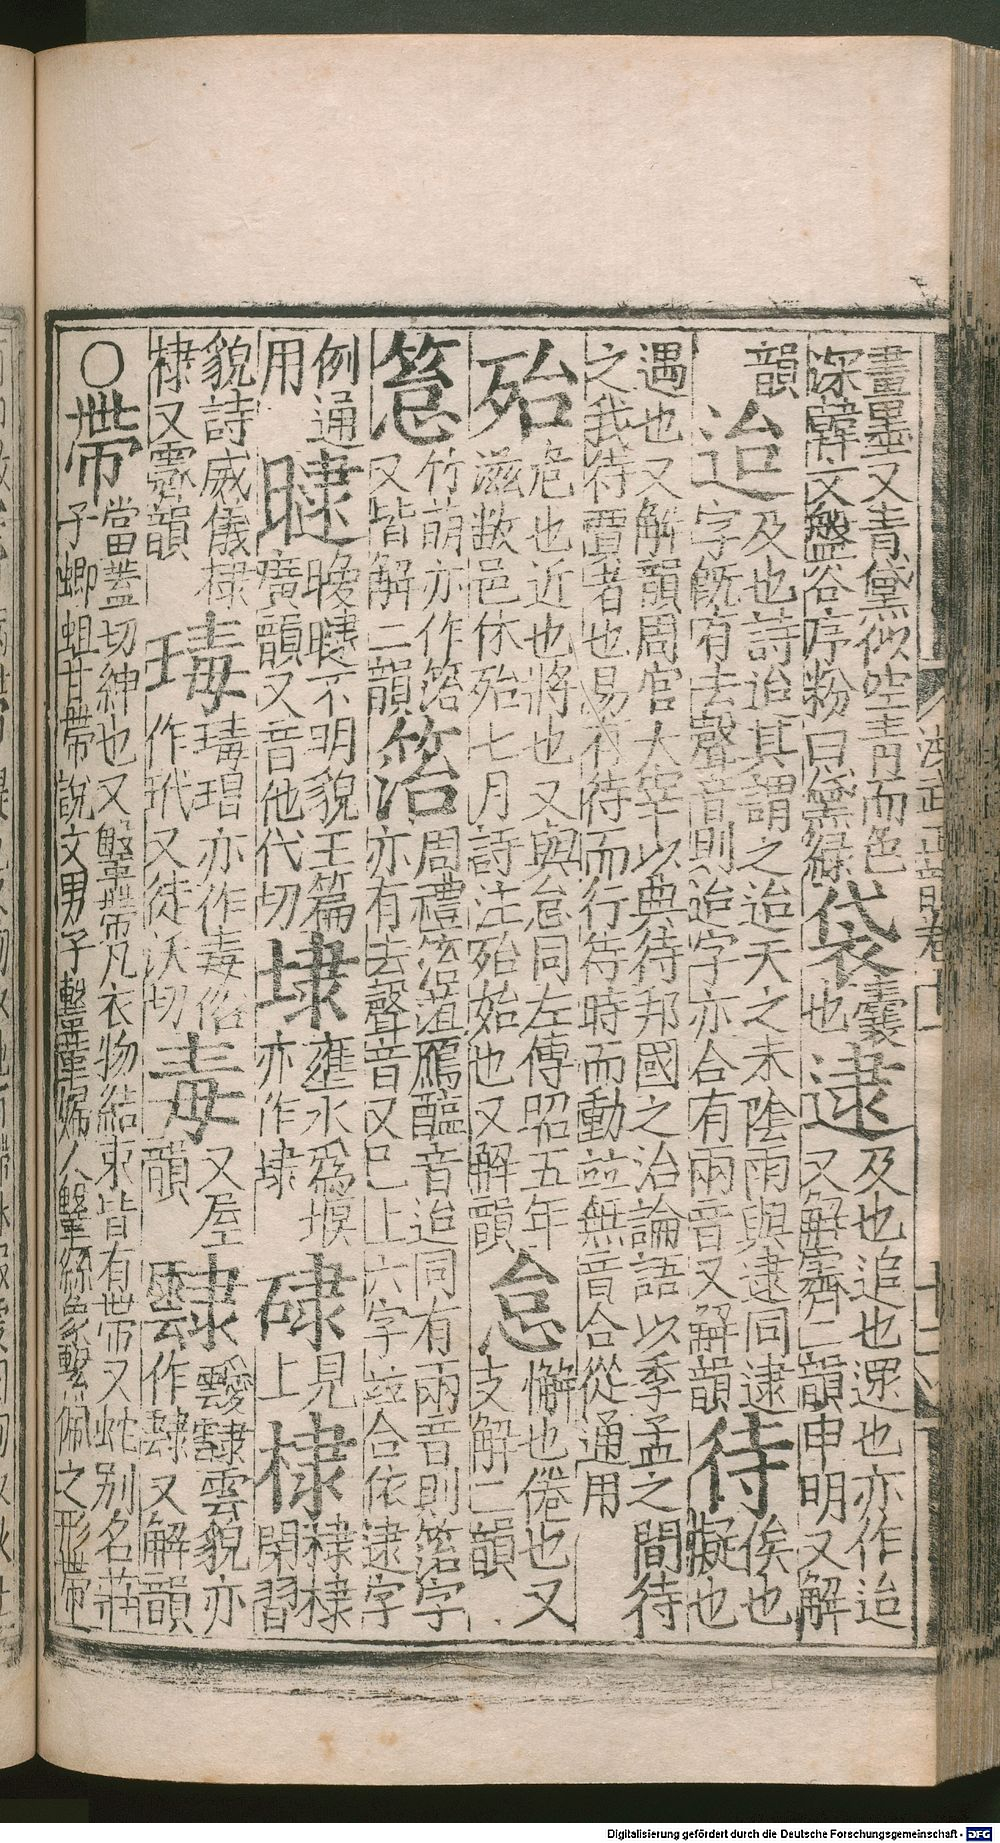 畫墨又青黛似空青而色
深韓文盤谷序粉白黛綠袋囊也逮及也追也遝也亦作迨
又解霽二韻申明又解
韻迨及也詩迨其謂之迨天之未陰雨與逮同逮
字旣有去聲音則迨字亦合有兩音又解韻待俟也擬也
遇也又解韻周官大宰以典待邦國之治論語以季孟之間待
之我待賈者也易有待而行待時而動並無音合從通用
殆危也近也將也又與怠同左傳昭五年
滋敝邑休殆七月詩注殆始也又解韻怠懈也倦也又
支解二韻
䈚竹萌亦作箈
又皆解二韻箈周禮箈菹鴈醢音迨同有兩音則箈字
亦有去聲音又已上六字並合依逮字
例通
用曃曖曃不明貌玉篇
廣韻又音他代切埭壅水爲堰
亦作埭碌見
上棣棣棣
閑習
貌詩威儀棣
棣又霽韻瑇瑇瑁亦作毒俗
作玳又徒沃切毒又屋
韻靆靉靆雲貌亦
作靆又解韻
○帶當蓋切紳也又鞶帶凡衣物結束皆有帶又蛇別名莊
子蝍蛆甘帶說文男子鞶革婦人鞶絲象繫佩之形帶
洪武正韻卷十
十二
Digitalisierung gefördert durch die Deutsche Forschungsgemeinschaft - DFG